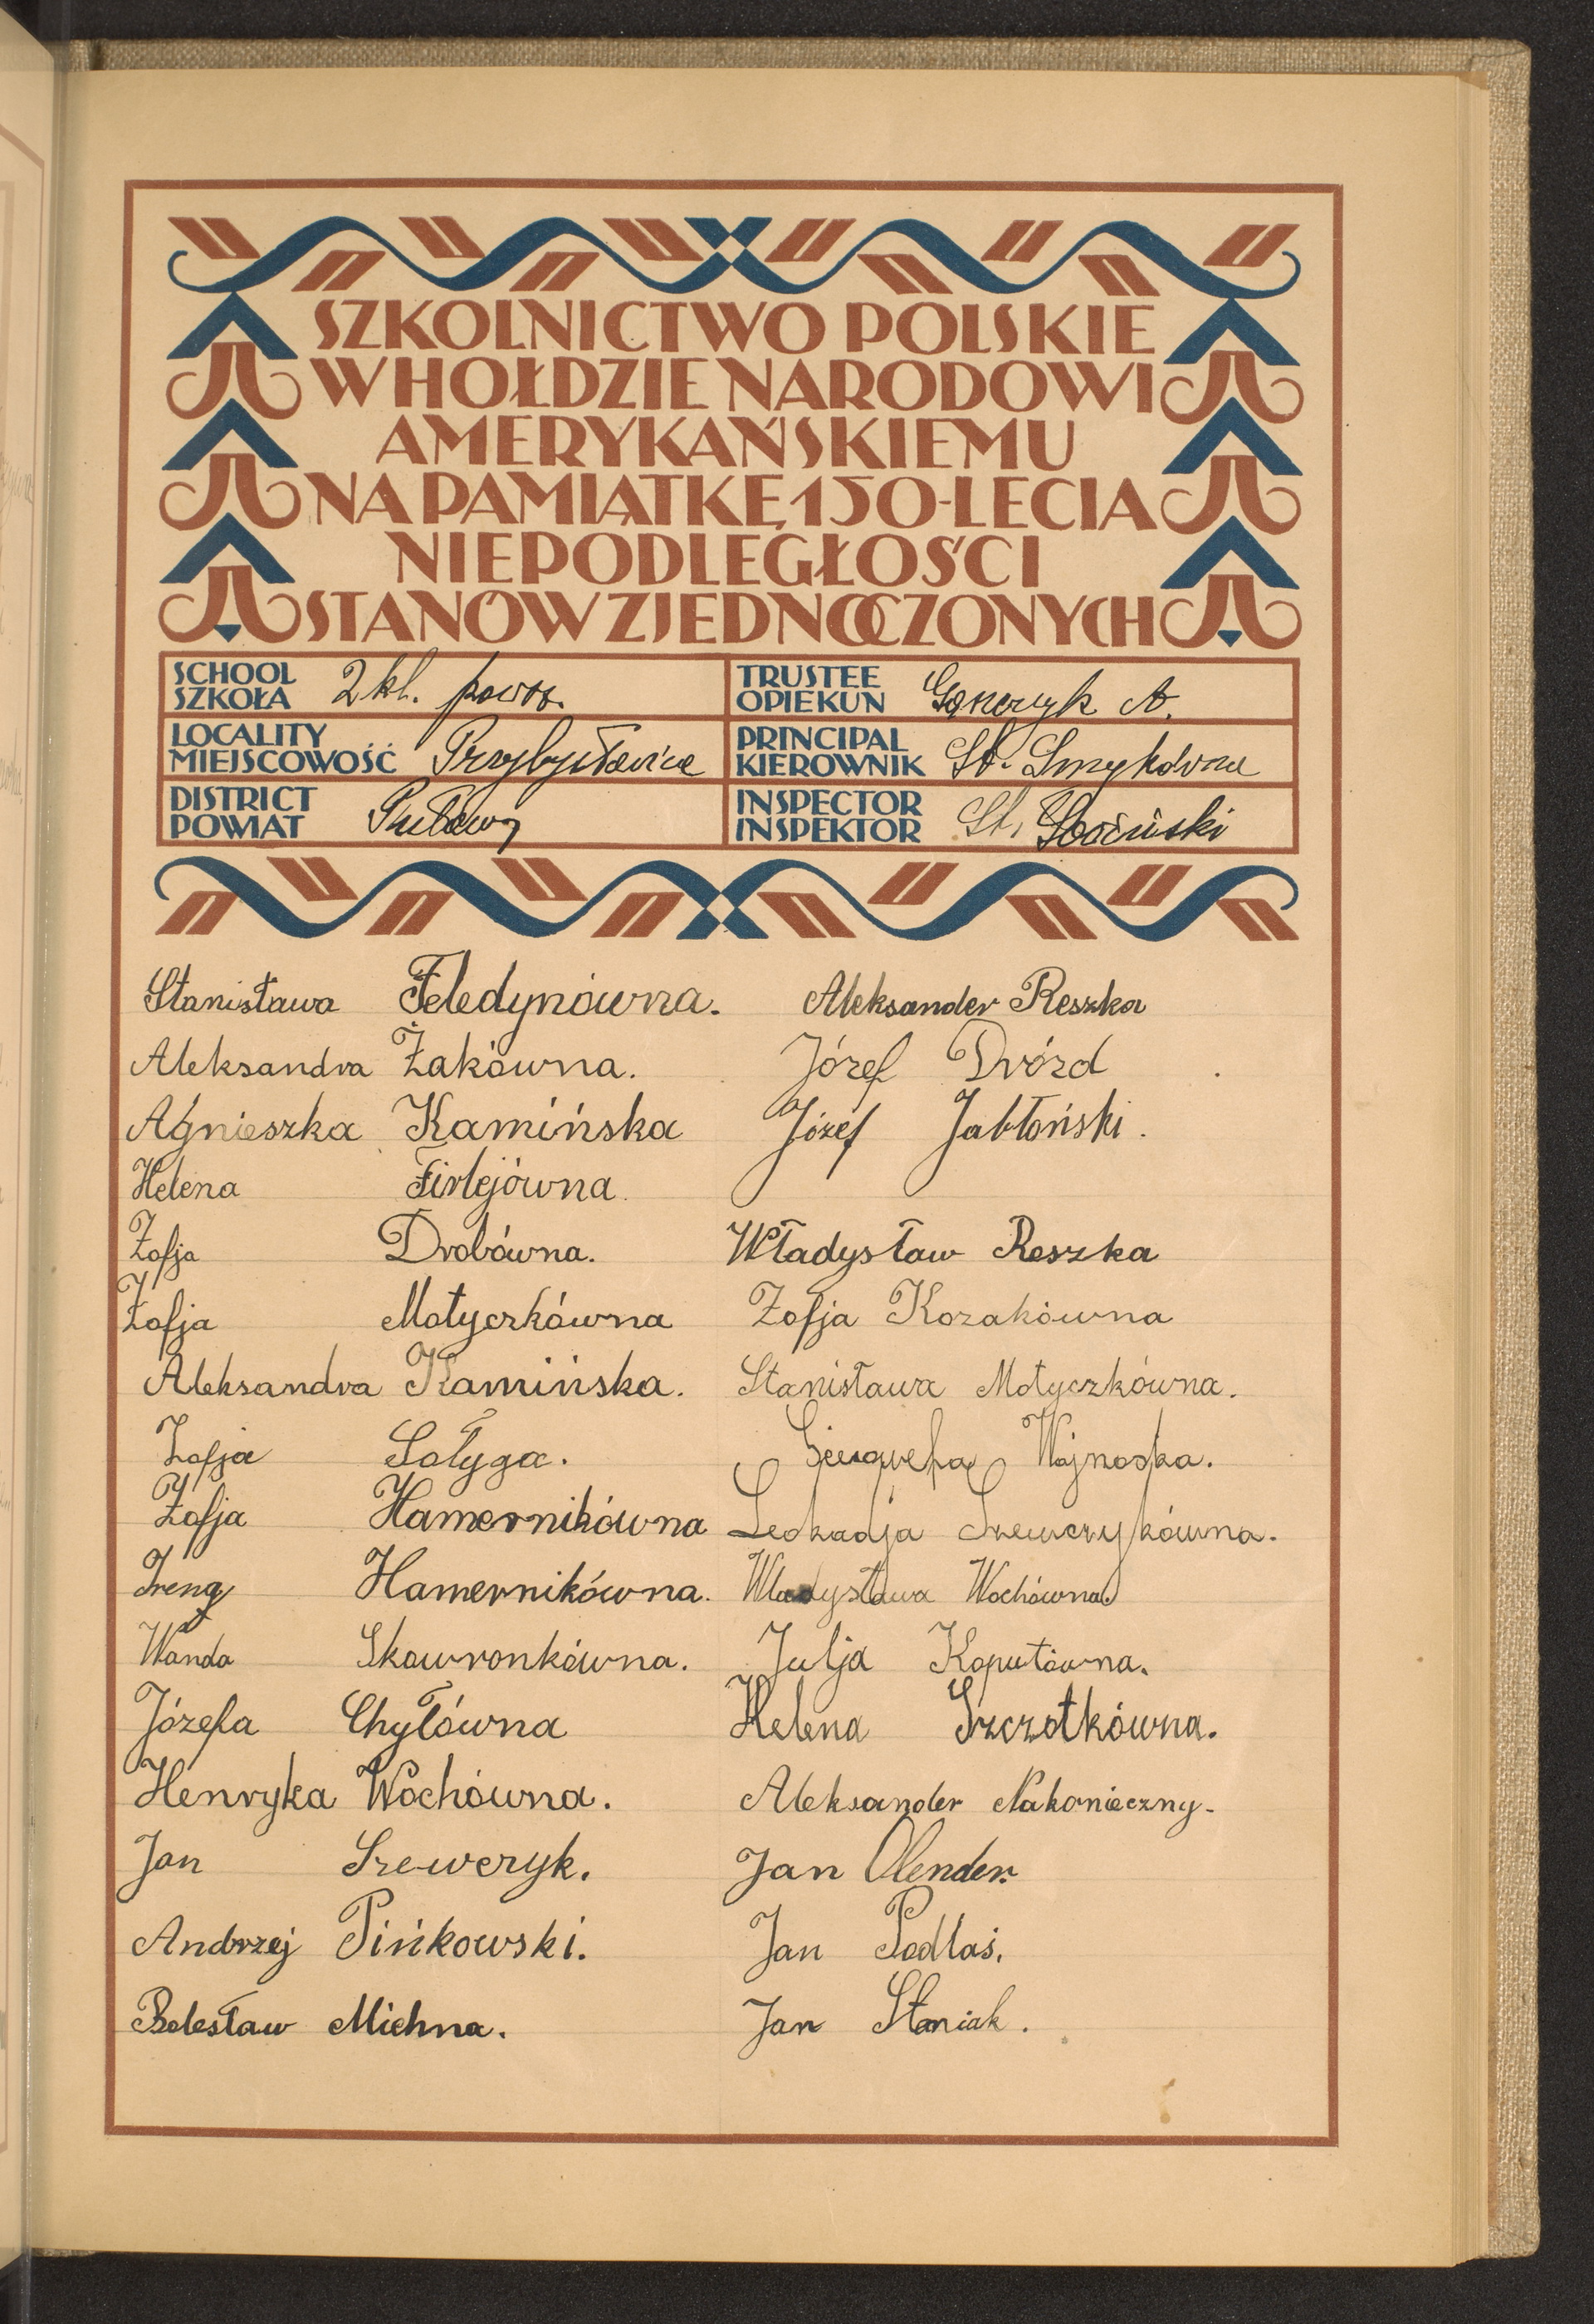 SZKOLNICTWO POLSKIE
W HOŁDZIE NARODOWI
AMERYKAŃSKIEMU
NA PAMIĄTKĘ 150-LECIA
NIEPODLEGŁOŚCI
STANÓW ZJEDNOCZONYCH
SCHOOL SZKOŁA 2 kl. powsz.
TRUSTEE OPIEKUN A.
LOCALITY MIEJSCOWOŚĆ Przybysławice
PRINCIPAL KIEROWNIK St. Smykówna
DISTRICT POWIAT Puławy
INSPECTOR INSPEKTOR St.
Stanisława Feledynówna.
Aleksandra Żakówna.
Agnieszka Kamińska
Helena Firlejówna.
Zofja Drobówna.
Zofja Motyczkówna
Aleksandra Kamińska.
Zofja Sołyga.
Zofja Hamernikówna
Irena Hamernikówna.
Wanda Skowronkówna.
Józefa Chyłówna
Henryka Wochówna.
Jan Szewczyk.
Andrzej Pińkowski.
Bolesław Michna.
Aleksander Reszka
Józef Drózd
Józef Jabłoński.
Władysław Reszka
Zofja Kozakówna
Stanisława Motyczkówna.
Wajnoska.
Leokadja Szewczykówna.
Władysława Wochówna.
Julja Kaputówna.
Helena Szczotkówna.
Aleksander Nakonieczny.
Jan Olender.
Jan Podlaś.
Jan Staniak.